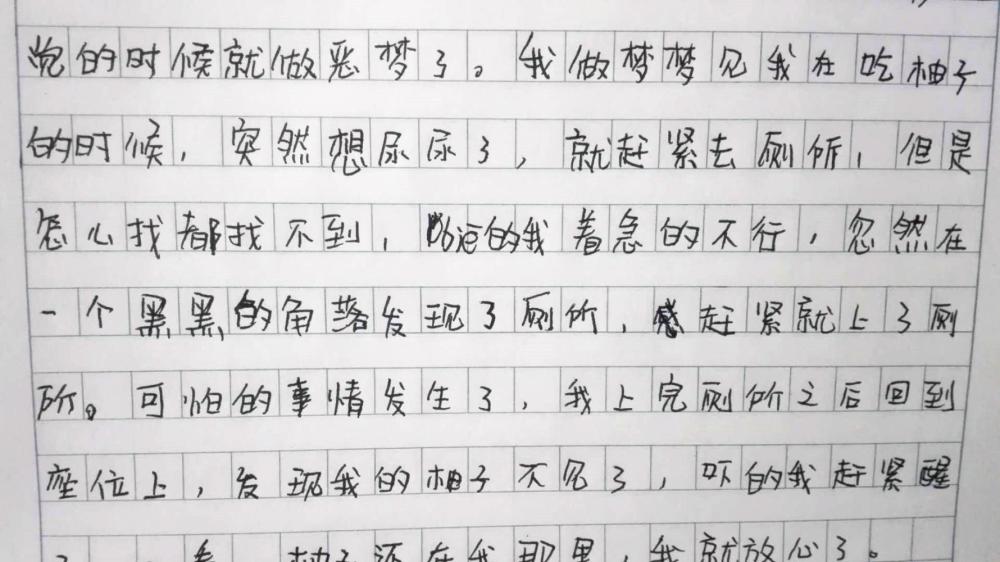 觉的时候就做恶梦了。我做梦梦见我在吃柚子
的时候，突然想尿尿了，就赶紧去厕所，但是
怎么找都找不到，的我着急的不行，忽然在
一个黑黑的角落发现了厕所，赶紧就上了厕
所。可怕的事情发生了，我上完厕所之后回到
座位上，发现我的柚子不见了，吓的我赶紧醒
还在我那里，我就放心了。